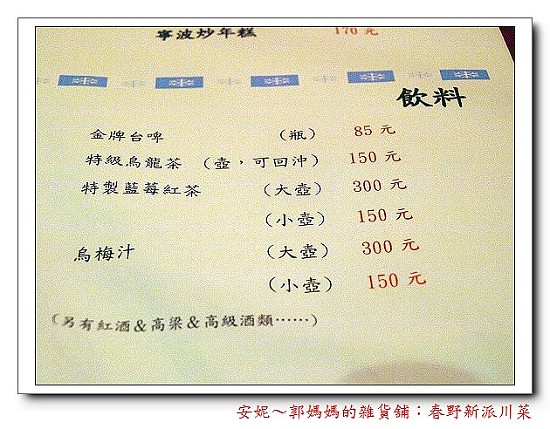 寧波炒年糕 170 元
飲料
金牌台啤 (瓶) 85 元
特級烏龍茶 (壺，可回沖) 150 元
特製藍莓紅茶 (大壺) 300 元
(小壺) 150 元
烏梅汁 (大壺) 300 元
(小壺) 150 元
(另有紅酒&高梁&高級酒類⋯⋯)
安妮～郭媽媽的雜貨舖：春野新派川菜